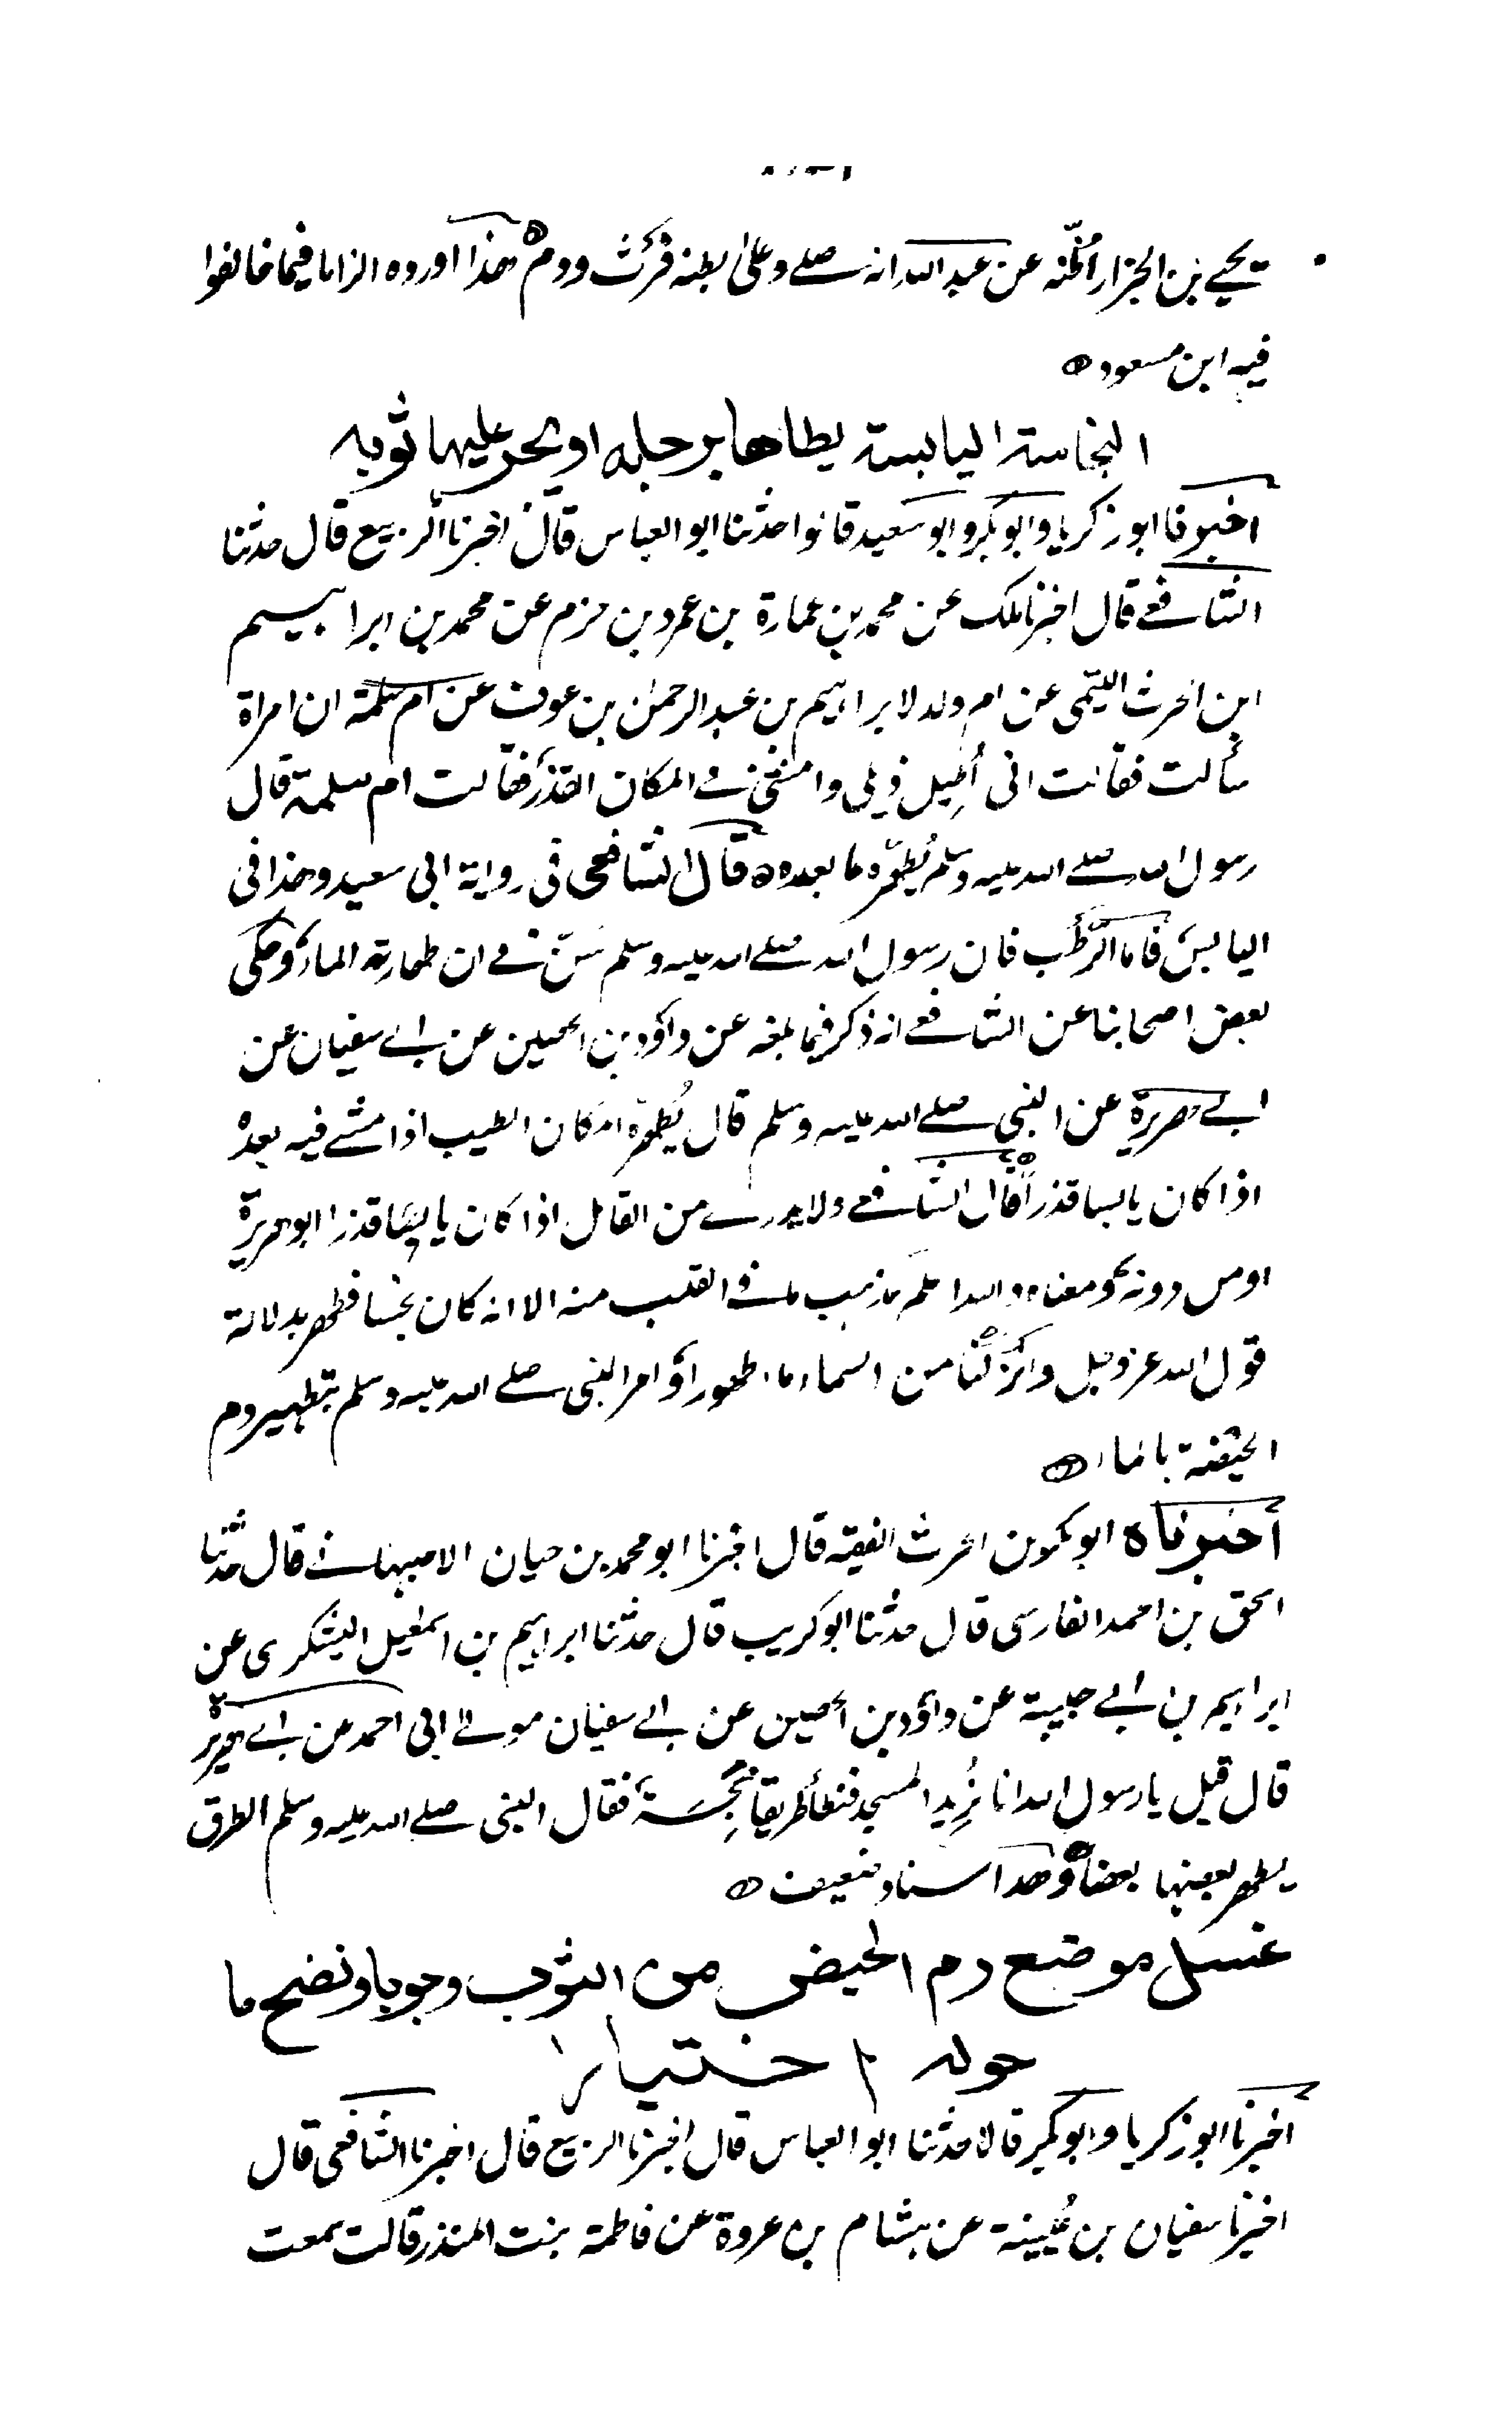 يحيى بن الجزار أظنه عن عبد الله انه صلى وعلى بطنه فرث ودم هذا اورده الزاما فيما خالفوا
فيه ابن مسعود
النجاسة اليابسة يطاها برجله او يجر عليها ثوبه
اخبرنا ابو زكريا وابو بكر وابو سعيد قالوا حدثنا ابو العباس قال اخبرنا الربيع قال حدثنا
الشافعے قال اخبرنا ملك عن محمد بن عمارة بن عمرو بن حزم عن محمد بن ابراهيم
ابن الحرث التيمى عن ام ولد لابراهيم بن عبد الرحمن بن عوف عن ام سلمة ان امراة
سألت فقالت انى أُطيل ذيلى وامشى فے المكان القذر فقالت ام سلمة قال
رسول الله صلے الله عليه وسلم يُطهّره ما بعده قال الشافعى فى رواية ابى سعيد وهذا فى
اليابس فاما الرَّطب فان رسول الله صلے الله عليه وسلم سَنّ فے ان طهارته الماء وحكى
بعض اصحابنا عن الشافعے انه ذكر فيما بلغه عن داؤد بن الحصين عن ابے سفيان عن
ابے هريرة عن النبى صلے الله عليه وسلم قال يُطهّره المكان الطيب اذا مشے فيه بعدُ
اذا كان يابسا قذراً قال الشافعے ولا يدرے من القائل اذا كان يابسا قذرا ابو هريرة
او من دونه ومعناه والله اعلم مذهب ما فے القلب منه الا انه كان نجسا فطهر بدلالة
قول الله عز وجل وانزَلنا من السماء ماء طهورا وامر النبى صلے الله عليه وسلم بتطهير دم
الحيضة بالماء
أخبرناه ابو بكر بن الحرث الفقيه قال اخبرنا ابو محمد بن حيان الاصبهانے قال حدثنا
اسحق بن احمد الفارسى قال حدثنا ابو كريب قال حدثنا ابراهيم بن اسمٰعيل اليشكرى عن
ابراهيم بن ابے حبيبة عن داؤد بن الحصين عن ابے سفيان مولے ابى احمد عن ابے هريرة
قال قيل يا رسول الله انا نُرِيد المسجد فنطأ طريقا نَجِسَة فقال النبى صلے الله عليه وسلم الطرق
يطهر بعضها بعضا وهذا اسناد ضعيف
غسل موضع دم الحيض من الثوب وجوبا ونضح ما
حوله اختيارا
أخبرنا ابو زكريا وابو بكر قالا حدثنا ابو العباس قال اخبرنا الربيع قال اخبرنا الشافعى قال
اخبرنا سفيان بن عُيينة عن هشام بن عروة عن فاطمة بنت المنذر قالت سمعت